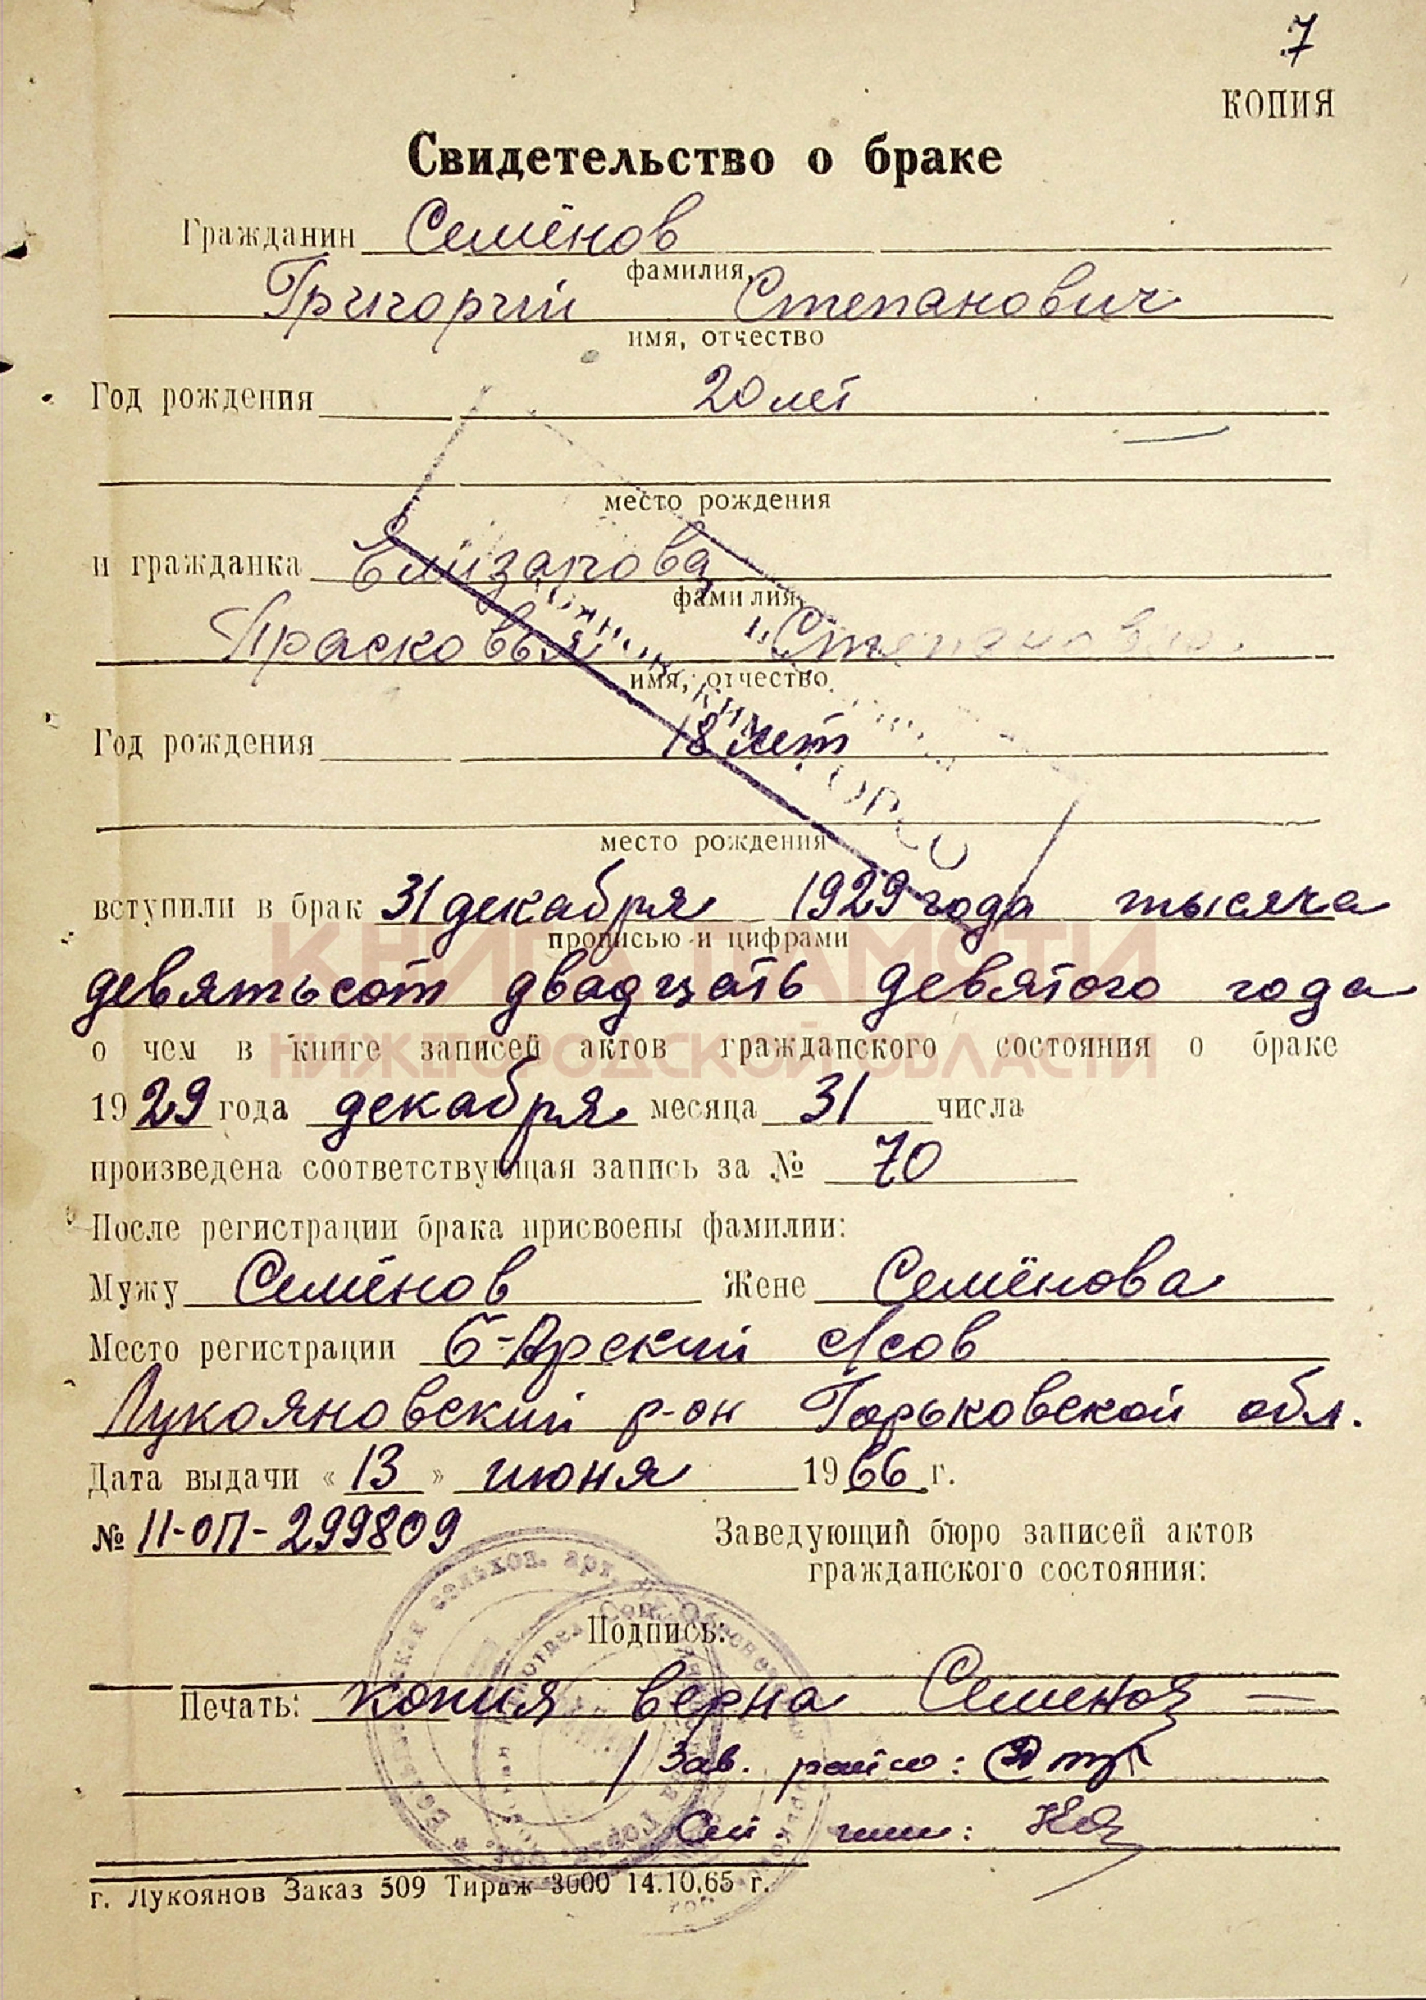 7
КОПИЯ
Свидетельство о браке
Гражданин Семёнов
фамилия,
Григорий Степанович
имя, отчество
Год рождения 20 лет
место рождения
и гражданка Елизарова
фамилия,
Прасковья Степановна
имя, отчество
Год рождения 18 лет
место рождения
вступили в брак 31 декабря 1929 года тысяча
прописью и цифрами
девятьсот двадцать девятого года
КНИГА ПАМЯТИ
НИЖЕГОРОДСКОЙ ОБЛАСТИ
о чем в книге записей актов гражданского состояния о браке
1929 года декабря месяца 31 числа
произведена соответствующая запись за № 70
После регистрации брака присвоены фамилии:
Мужу Семёнов Жене Семёнова
Место регистрации Б-Арский с/сов
Лукояновский р-он Горьковской обл.
Дата выдачи «13» июня 1966 г.
№ 11-ОП-299809
Заведующий бюро записей актов
гражданского состояния:
Подпись:
Печать: копия верна Семенов
Зав. райсо:
г. Лукоянов Заказ 509 Тираж 3000 14.10.65 г.